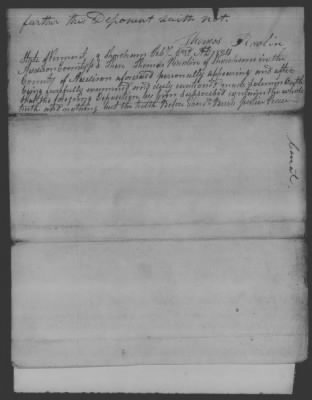 further this Deponent saith not.
Thomas Rowlin
State of Vermont } Shoreham Feb. 1824
Addison County Ss } Then Thomas of Shoreham in the
County of Addison aforesaid personally appearing and after
being carefully examined and duly cautioned made Solemn Oath
that the foregoing Deposition by him subscribed contains the whole
truth and nothing but the truth Before Justice Peace